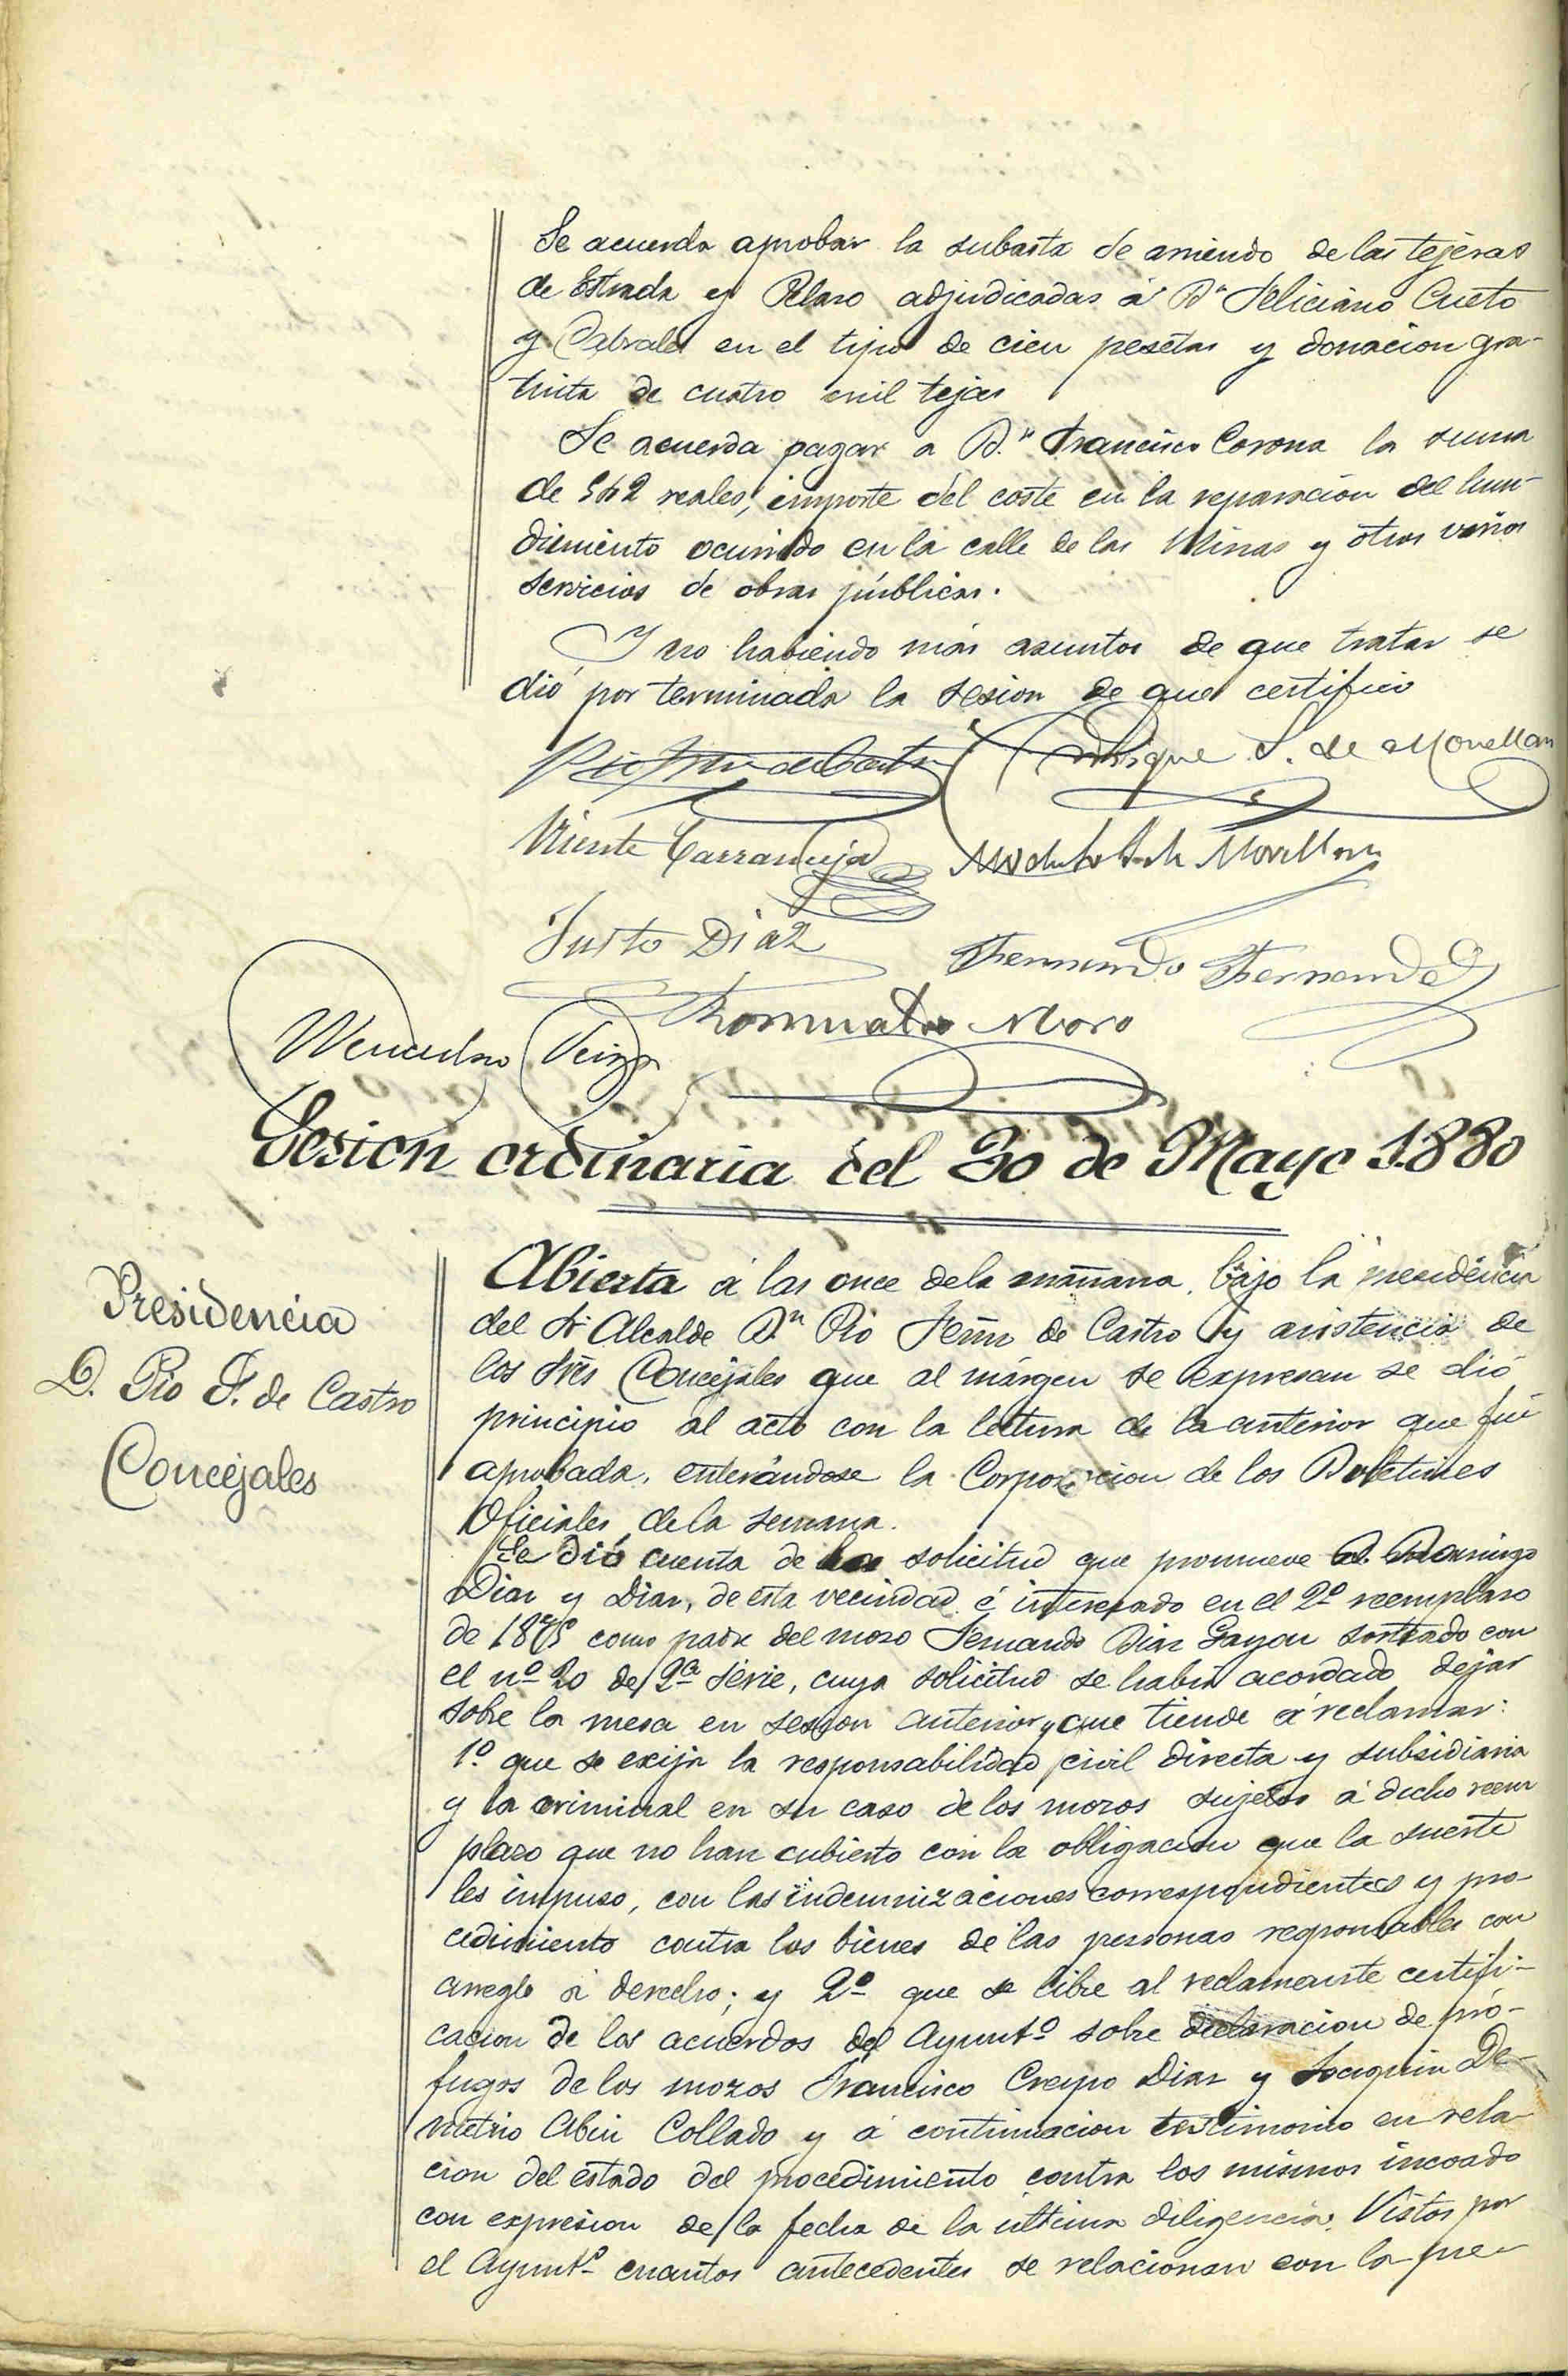 Se acuerda aprobar la subasta de arriendo de las tejeras
de Estrada y Peläso adjudicadas á Dn Feliciano Cueto
y Cabrales en el tipo de cien pesetas y donacion gra-
tuita de cuatro mil tejas
Se acuerda pagar a D.n Francisco Corona la suma
de 542 reales, importe del coste en la reparacion del hun-
dimiento ocurrido en la calle de las Minas y otros varios
servicios de obras públicas.
Y no habiendo más asuntos de que tratar se
dió por terminada la sesion de que certifico
Enrique S. de Movellan
Vicente Carranceja
Movellan
Justo Diaz
Fernando Fernandez
Romualdo Moro
Wenceslao
Sesion ordinaria del 30 de Mayo 1.880
Presidencia
D. Pio F. de Castro
Concejales
Abierta á las once de la mañana, bajo la presidencia
del Sr. Alcalde D.n Pio Fern de Castro y asistencia de
los Sres Concejales que al márgen se expresan se dió
principio al acto con la lectura de la anterior que fué
aprobada, enterándose la Corporacion de los Boletines
Oficiales de la semana.
Se dió cuenta de la solicitud que promueve D. Domingo
Diaz y Diaz, de esta vecindad é interesado en el 2º reemplazo
de 1875 como padre del mozo Fernando Diaz Gayon sorteado con
el nº 20 de 2ª série, cuya solicitud se habia acordado dejar
sobre la mesa en sesion anterior y que tiende á reclamar:
1º que se exija la responsabilidad civil directa y subsidiaria
y la criminal en su caso de los mozos sujetos á dicho reem
plazo que no han cubierto con la obligacion que la suerte
les impuso, con las indemnizaciones correspondientes y pro-
cedimiento contra los bienes de las personas responsables con
arreglo á derecho; y 2º que se libre al reclamante certifi-
cacion de los acuerdos del Ayuntº sobre declaracion de pró-
fugos de los mozos Francisco Crespo Diaz y Joaquin De-
metrio Abin Collado y á continuacion testimonio en rela-
cion del estado del procedimiento contra los mismos incoado
con expresion de la fecha de la última diligencia. Vistos por
el Ayuntº cuantos antecedentes se relacionan con la pre-